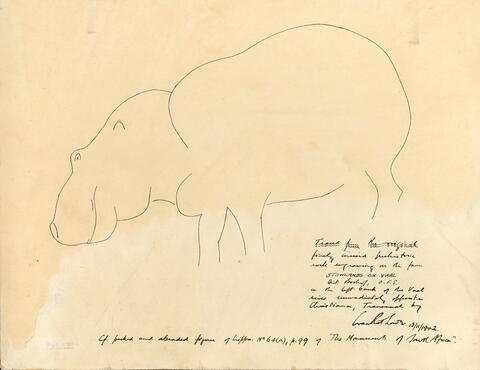 Traced from the original
finely incised prehistoric
rock engraving on the farm
STOWLANDS ON VAAL
Dist. Boshof, O.F.S.
on the left bank of the Vaal
river immediately opposite
Christiana, Transvaal by
Cf. pecked and abraded figure of hippo. No 64(a), p. 99 of "The Monuments of South Africa".